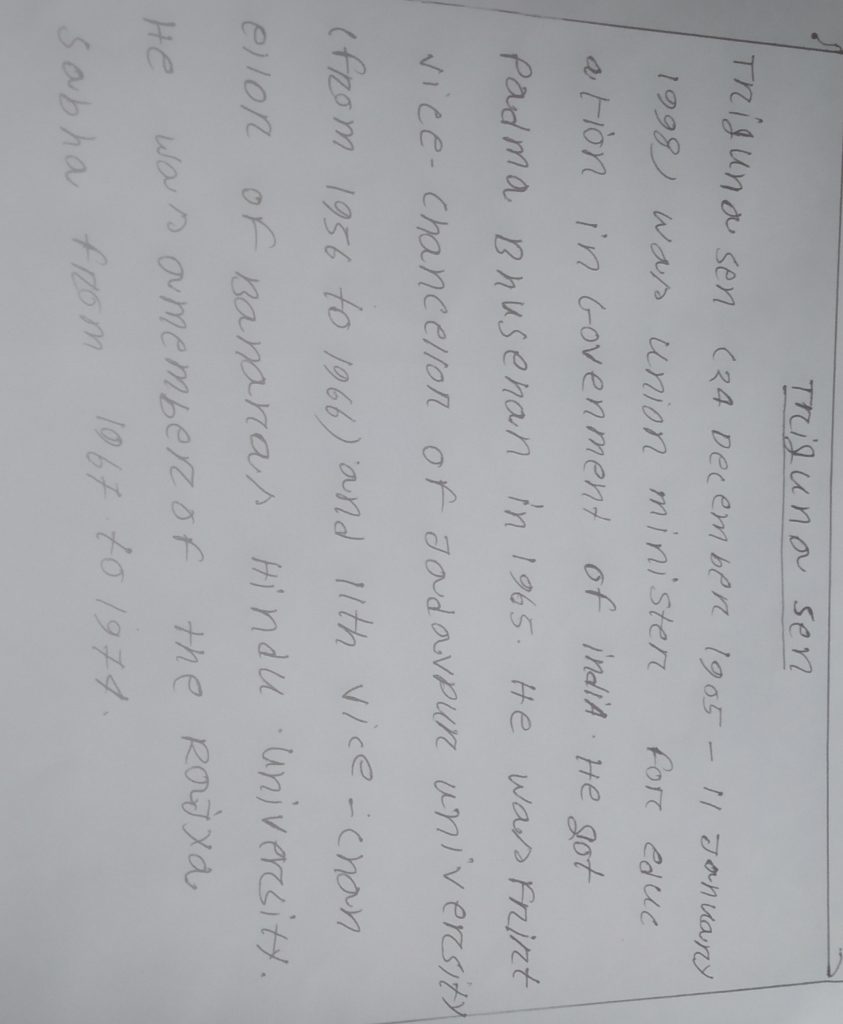 Triguna sen
Triguna sen (24 December 1905 - 11 January
1998) was union minister for educ
ation in Govenment of india. He got
Padma Bhusehan in 1965. He was first
vice-chancellor of Jadavpur university
(from 1956 to 1966) and 11th vice-chan
ellor of Banaras Hindu university.
He was amember of the Rajya
Sabha from 1967 to 1974.